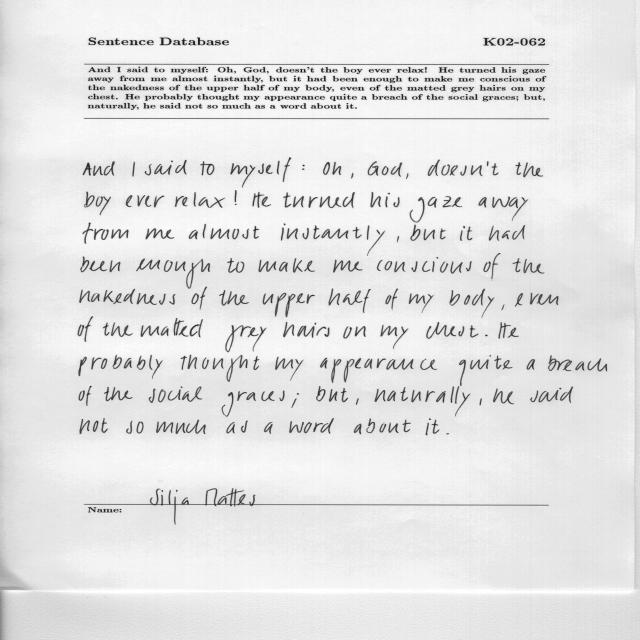 Sentence Database K02-062
And I said to myself: Oh, God, doesn't the boy ever relax! He turned his gaze
away from me almost instantly, but it had been enough to make me conscious of
the nakedness of the upper half of my body, even of the matted grey hairs on my
chest. He probably thought my appearance quite a breach of the social graces; but,
naturally, he said not so much as a word about it.
And I said to myself : Oh, God, doesn't the
boy ever relax! He turned his gaze away
from me almost instantly, but it had
been enough to make me conscious of the
nakedness of the upper half of my body, even
of the matted grey hairs on my chest. He
probably thought my appearance quite a breach
of the social graces; but, naturally, he said
not so much as a word about it.
Silja Mattes
Name: